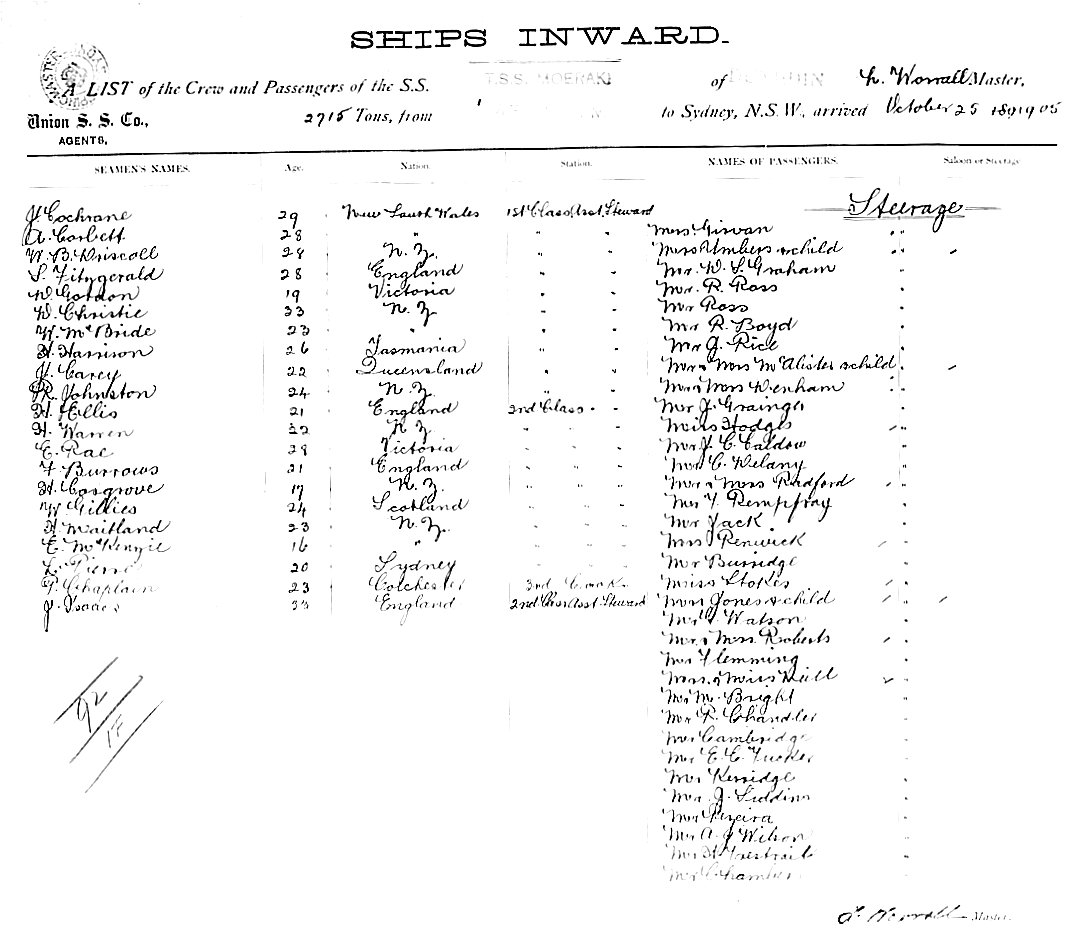 SHIPS INWARD.
A LIST of the Crew and Passengers of the S.S. T.S.S. MOERAKI of DUNEDIN Worrall Master,
Union S. S. Co., 2715 Tons, from to Sydney, N.S.W., arrived October 25 1891905
AGENTS,
SEAMEN'S NAMES. Age. Nation. Station. NAMES OF PASSENGERS. Saloon or Steerage
Steerage
J. Cochrane 29 New South Wales 1st Class Asst. Steward Mrs Girvan "
A. Corbett 28 " " " Mrs Umbers & child " "
W. B. Driscoll 28 N. Z. " " Mr. W. S. Graham "
S. Fitzgerald 28 England " " Mr. R. Ross "
W. Gordon 19 Victoria " " Mr Ross "
D. Christie 33 N. Z. " " Mr R. Boyd "
W. McBride 23 " " " Mr G. Rice "
H. Harrison 26 Tasmania " " Mr & Mrs McAlister & child "
J. Carey 22 Queensland " " Mr & Mrs Denham "
R. Johnston 24 N. Z. " " Mr J. Grainger "
H. Ellis 21 England 2nd Class " " Miss Hodges "
H. Warren 22 N. Z. " " " Mr J. C. Caldow "
E. Rae 28 Victoria " " " Mr C. Delany "
F. Burrows 21 England " " " Mr & Mrs Radford "
H. Cosgrove 17 N. Z. " " " Mr F. Rempfray "
W. Gillies 24 Scotland " " " Mr Jack "
H. Maitland 23 N. Z. " " " Mrs Renwick "
E. McKenzie 16 " " " " Mr Burridge "
L. Pierre 20 Sydney " " " Miss Stokes "
P. Chaplain 23 Colchester 3rd Cook Mrs Jones & child "
J. Isaacs 33 England 2nd Class Asst Steward Mr Watson "
Mr & Mrs Roberts "
Mr Flemming "
Mrs & Miss "
Mr M. Bright "
Mr R. Chandler "
Mr Cambridge "
Mr E. C. Tucker "
Mr Kerridge "
Mr J. Siddins "
Mr Pereira "
Mr A. J Wilson "
Mr H. Trestrail "
Mr Chambers "
92
Worrall Master.